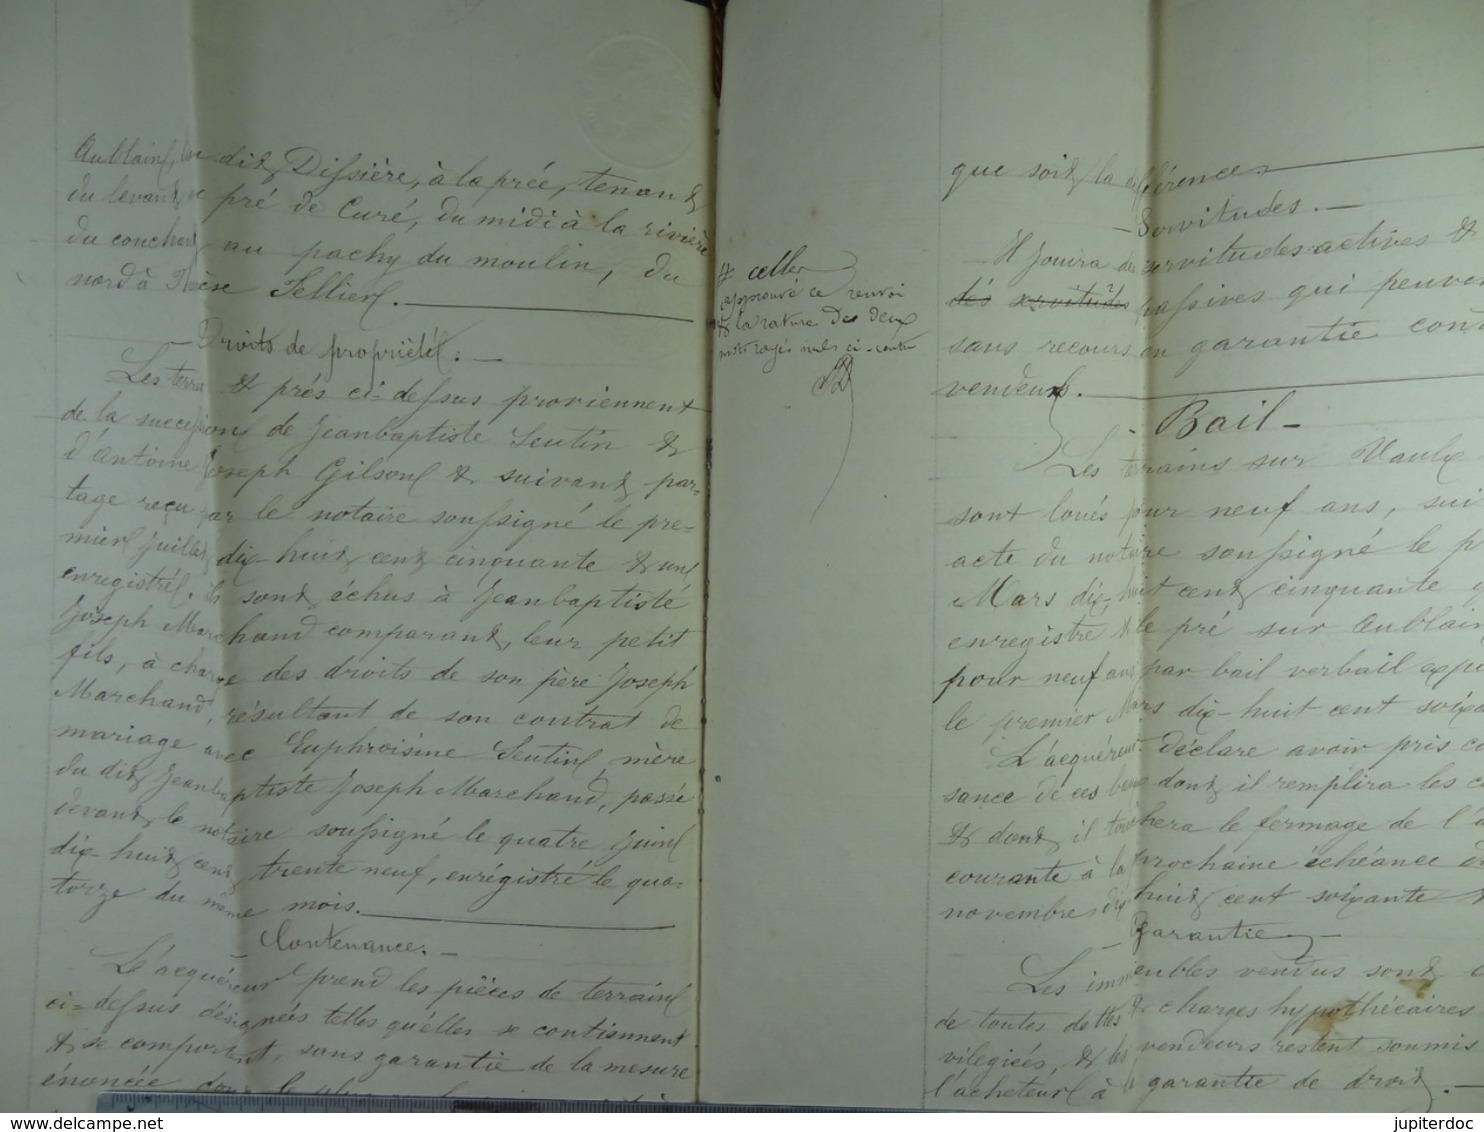 Aublain, lieu dit Dissière, à la prée, tenant
du levant au pré de Curé, du midi à la rivière
du couchant au pachy du moulin, du
nord à Tellier.
Droits de propriété.
Les terres & prés ci-dessus proviennent
de la succession de Jeanbaptiste Seutin &
d'Antoine Joseph Gilson & suivant par-
tage reçu par le notaire soussigné le pre-
mier Juillet dix-huit cent cinquante & un
enregistré. ils sont échus à Jeanbaptiste
Joseph Marchand comparant, leur petit
fils, à charge des droits de son père Joseph
Marchand, résultant de son contrat de
mariage avec Euphroisine Seutin, mère
du dit Jeanbaptiste Joseph Marchand, passé
devant le notaire soussigné le quatre Juin
dix-huit cent trente neuf, enrégistré le qua-
torze du même mois.
Contenance.
L'acquéreur prend les pièces de terrain
ci-dessus désignées telles qu'elles se contiennent
& se comportent, sans garantie de la mesure
énoncée
# celles
approuvé ce renvoi
& la rature des deux
mots rayés nuls ci-contre
que soit la différence
Servitudes.
Il jouira des servitudes actives &
des servitudes passives qui peuven
sans recours en garantie cont
vendeurs.
Bail
Les terrains sur Vaulx
sont loués pour neuf ans, sui
acte du notaire soussigné le p
Mars dix-huit cent cinquante
enregistré & le pré sur Aublain
pour neuf ans par bail verbail exp
le premier Mars dix-huit cent soixa
L'acquéreur déclare avoir pris co
sance de ces baux dont il remplira les c
& dont il touchera le fermage de l'a
courante à la prochaine échéance d
novembre dix huit cent soixante
Garantie
Les immeubles vendus sont
de toutes dettes & charges hypothécaires
vilégiées, & les vendeurs restent soumis
l'acheteur à la garantie de droit.